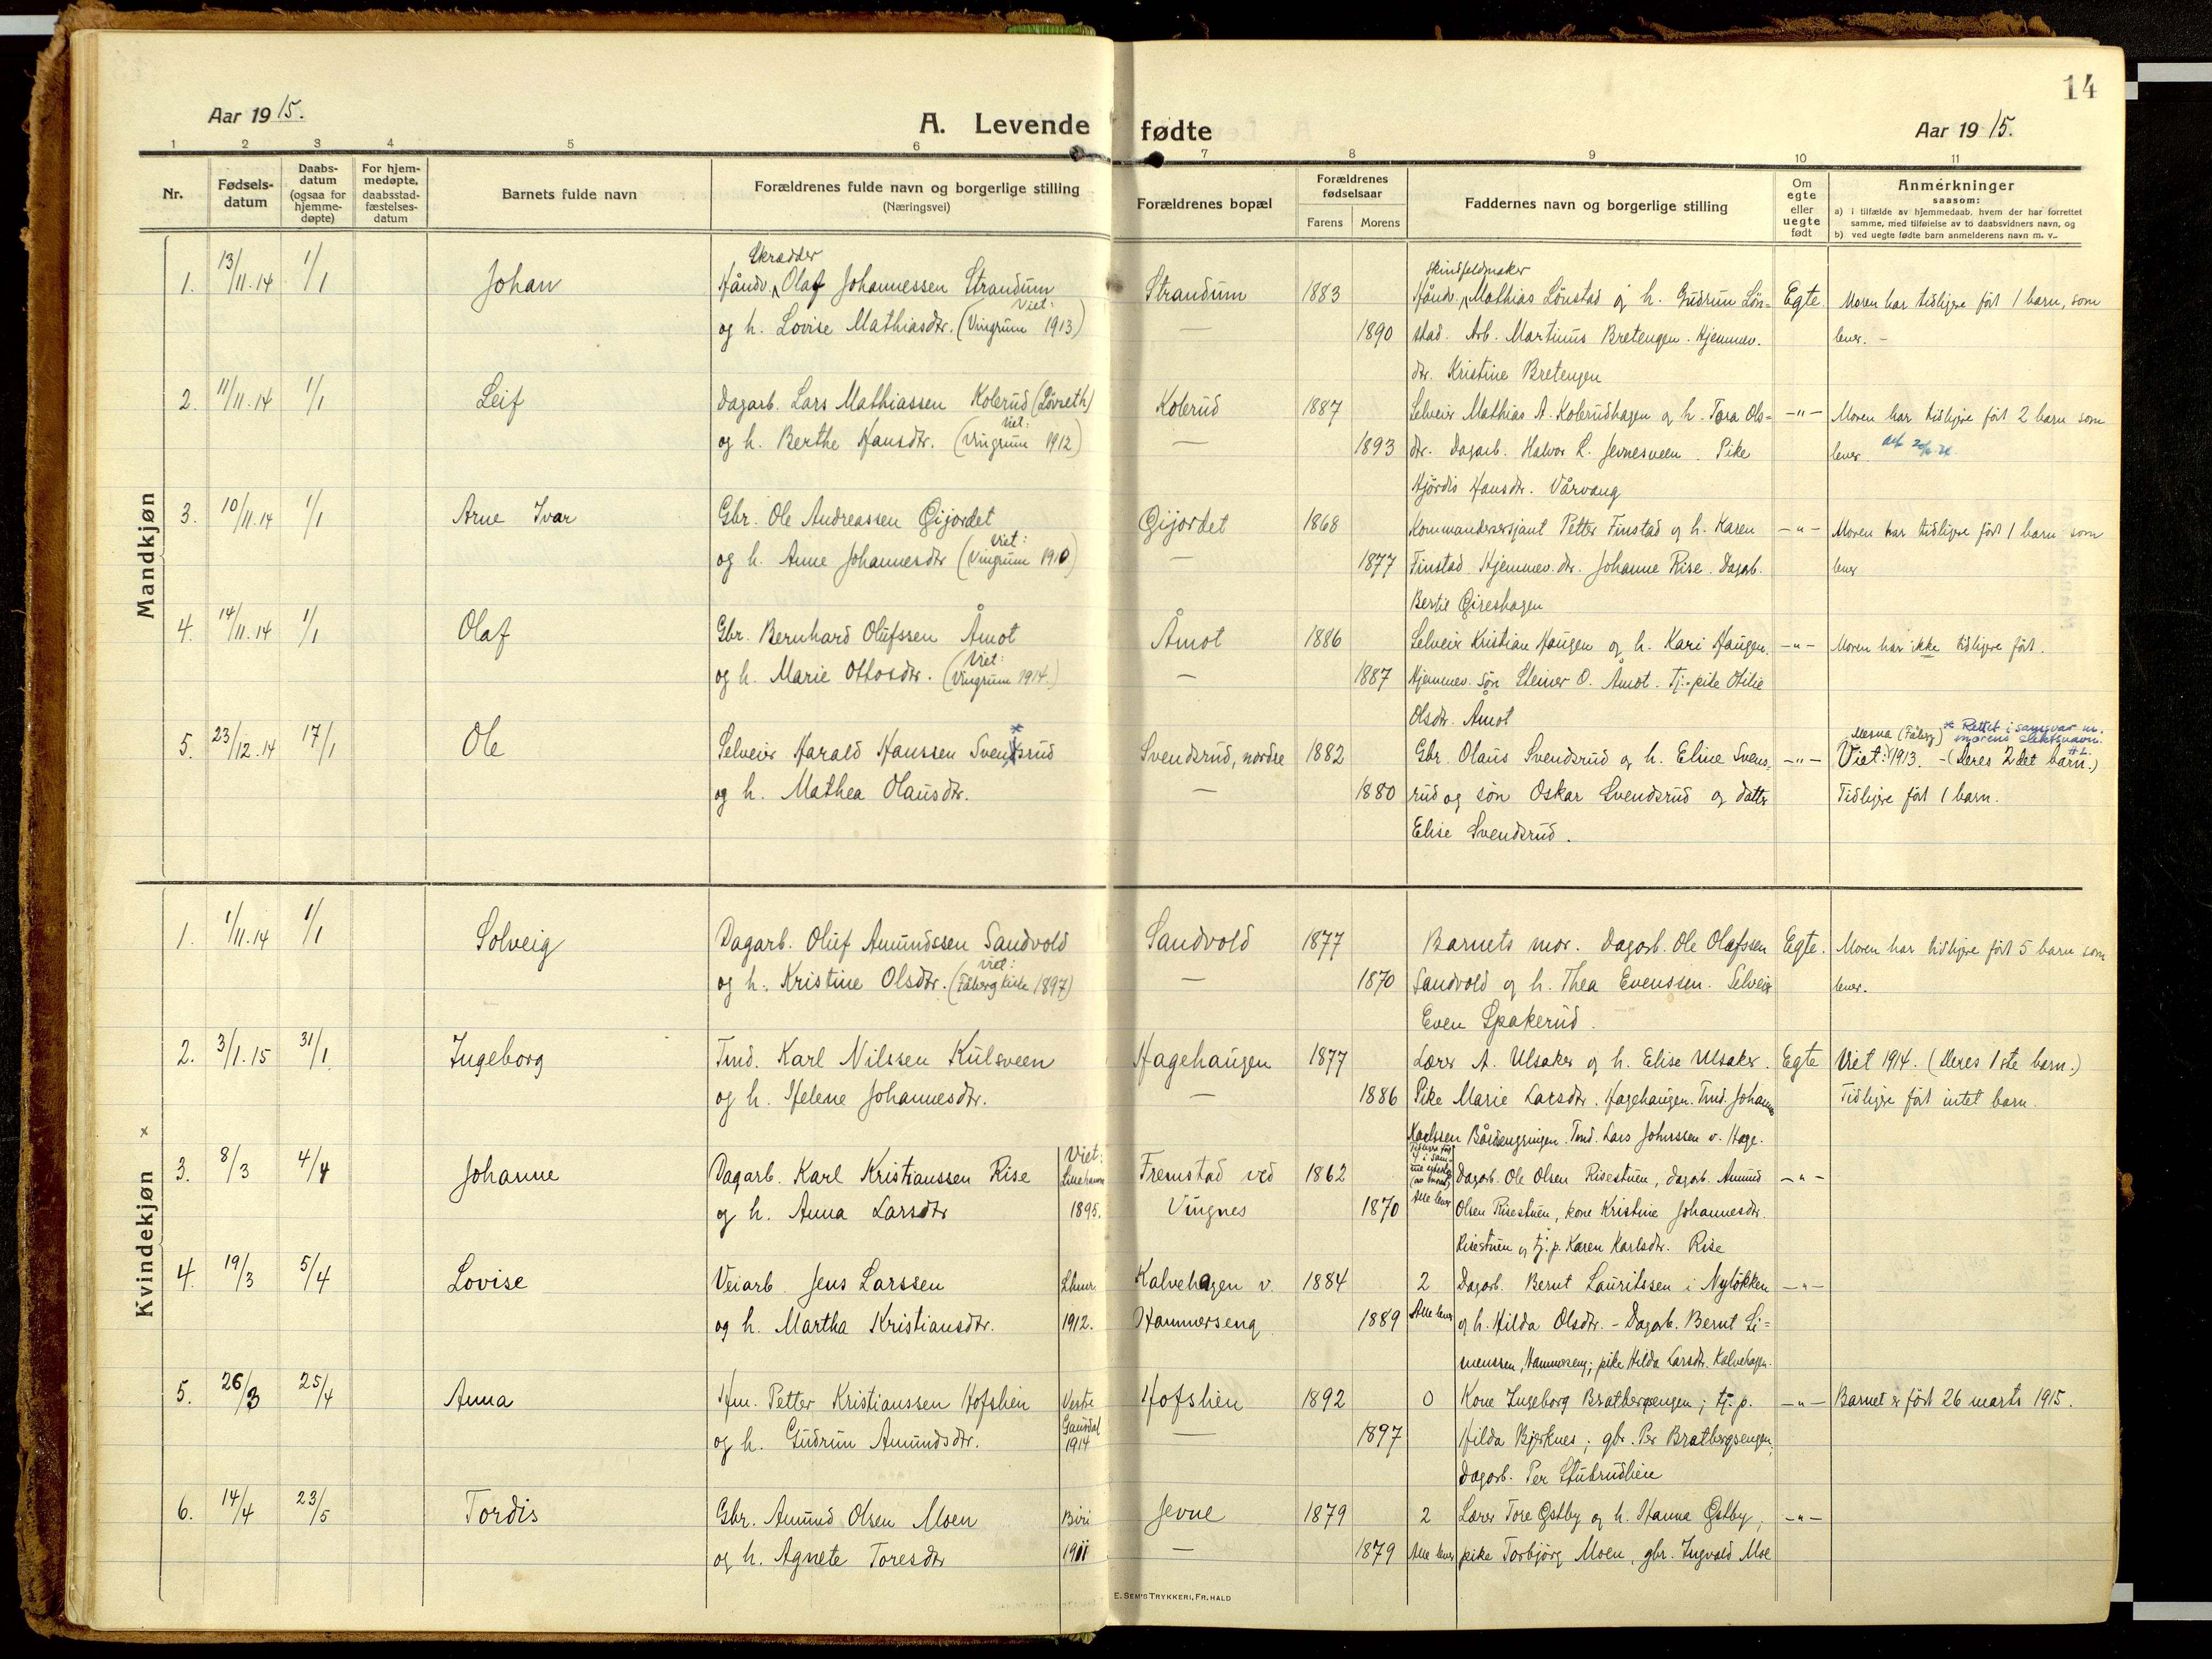 14
Aar 1915.
A. Levende fødte
Aar 1915.
1 2 3 4 5 6 7 8 9 10 11
Nr.
Fødsels-datum
Daabs-datum (ogsaa for hjemme-døpte)
For hjem-medøpte, daabsstad-fæstelses-datum
Barnets fulde navn
Forældrenes fulde navn og borgerlige stilling
(Næringsvei)
Forældrenes bopæl
Forældrenes fødselsaar
Farens Morens
Faddernes navn og borgerlige stilling
Om egte eller uegte født
Anmerkninger
saasom:
a) i tilfælde av hjemmedaab, hvem der har forrettet samme, med tilføielse av to daabsvidners navn, og
b) ved uegte fødte barn anmelderens navn m. v.
Mandkjøn
Skrædder Skindfeldmaker
1. 13/11.14 1/1 Johan Håndv. Olaf Johannessen Strandum Strandum 1883 Håndv. Mathias Lönstad og h. Gudrun Lön= Egte. Moren har tidligere fört 1 barn, som
og h. Lovise Mathiasdtr. (Viet: Vingrum 1913) — 1890 stad. Arb. Martinus Bretengen. Hjemmev. lever. -
dtr. Kristine Bretengen
2. 11/11.14 1/1 Leif Dagarb. Lars Mathiassen Kolerud (Lövseth) Kolerud 1887 Selveier Mathias A. Kolerudhagen og h. Tora Ols= -"- Moren har tidligere fört 2 barn som
og h. Berthe Hansdtr. (Viet: Vingrum 1912) — 1893 dtr. Dagarb. Halvor L. Jevnesveen. Pike lever.
Hjördis Hansdtr. Vårvang
3. 10/11.14 1/1 Arne Ivar Gbr. Ole Andreassen Gijordet Gijordet 1868 Kommandersersjant Petter Finstad og h. Karen -"- Moren har tidligere fört 1 barn som
og h. Anne Johannesdtr (Viet: Vingrum 1910) — 1877 Finstad Hjemmev. dtr. Johanne Rise. Dagarb. lever
Bertil Gireshagen
4. 14/11.14 1/1 Olaf Gbr. Bernhard Olufssen Åmot Åmot 1886 Selveier Kristian Haugen og h. Kari Haugen. -"- Moren har ikke tidligere fört.
og h. Marie Ottosdtr. (Viet: Vingrum 1914.) — 1887 Hjemmev. sön Steiner O. Åmot. Tj.-pike Otilie
Olsdtr. Åmot
Mesna (Fåberg) * Rettet i samsvar m. morens slektsnavn. H.L.
5. 23/12.14 17/1 Ole Selveier Harald Hanssen Svendsrud * Svendsrud, nordre 1882 Gbr. Olaus Svendsrud og h. Eline Svens= -"- Viet: 1913. - (Deres 2det barn.)
og h. Mathea Olausdtr. — 1880 rud og sön Oskar Svendsrud og datter Tidligere fört 1 barn.
Elise Svendsrud.
Kvindekjøn ×
1. 1/11.14 1/1 Solveig Dagarb. Oluf Amundssen Sandvold Sandvold 1877 Barnets mor. Dagarb. Ole Olafssen Egte. Moren har tidligere fört 5 barn som
og h. Kristine Olsdtr. (Viet: Fåberg kirke 1897) — 1870 Sandvold og h. Thea Evenssen. Selveier lever.
Even Spakerud.
2. 3/1.15 31/1 Ingeborg Tmd. Karl Nilssen Kulsveen Hagehaugen 1877 Lærer A. Ulsaker og h. Elise Ulsaker. Egte Viet 1914. (Deres 1ste barn.)
og h. Helene Johannesdtr. — 1886 Pike Marie Larsdtr. Hagehaugen. Tmd. Johannes Tidligere fört intet barn.
Karlssen Bårdsengringen. Tmd. Lars Johnssen v. Hage.
3. 8/3 4/4 Johanne Dagarb. Karl Kristianssen Rise Viet: Lillehammer Fremstad ved 1862 Dagarb. Ole Olsen Risestuen, dagarb. Amund -"-
og h. Anna Larsdtr 1895. Vingnes 1870 Alle lever Olsen Risestuen, kone Kristine Johannesdtr.
Risestuen og tj.p. Karen Karlsdtr. Rise
4. 19/3 5/4 Lovise Veiarb. Jens Larssen Lhmr. Kalvehagen v. 1884 2 Dagarb. Bernt Lauritssen i Nylökken -"-
og h. Martha Kristiansdtr. 1912. Hammerseng 1889 Alle lever og h. Hilda Olsdtr. - Dagarb. Bernt Si=
menssen, Hammerseng; pike Hilda Larsdtr. Kalvehagen.
5. 26/3 25/4 Anna Hm. Petter Kristianssen Hofslien Vestre Hofslien 1892 0 Kone Ingeborg Bratbergsengen; tj. p. -"- Barnet er fört 26 marts 1915.
og h. Gudrun Amundsdtr. Gausdal 1914 — 1897 Hilda Bjerknes; gbr. Per Bratbergsengen;
Dagarb. Per Stubrudlien
6. 14/4 23/5 Tordis Gbr. Amund Olsen Moen Biri Jevne 1879 2 Lærer Tore Østby og h. Hanna Østby; -"-
og h. Agnete Toresdtr 1911 — 1879 Alle lever pike Torbjörg Moen, gbr. Ingvald Moe
E. SEM'S TRYKKERI, FR. HALD